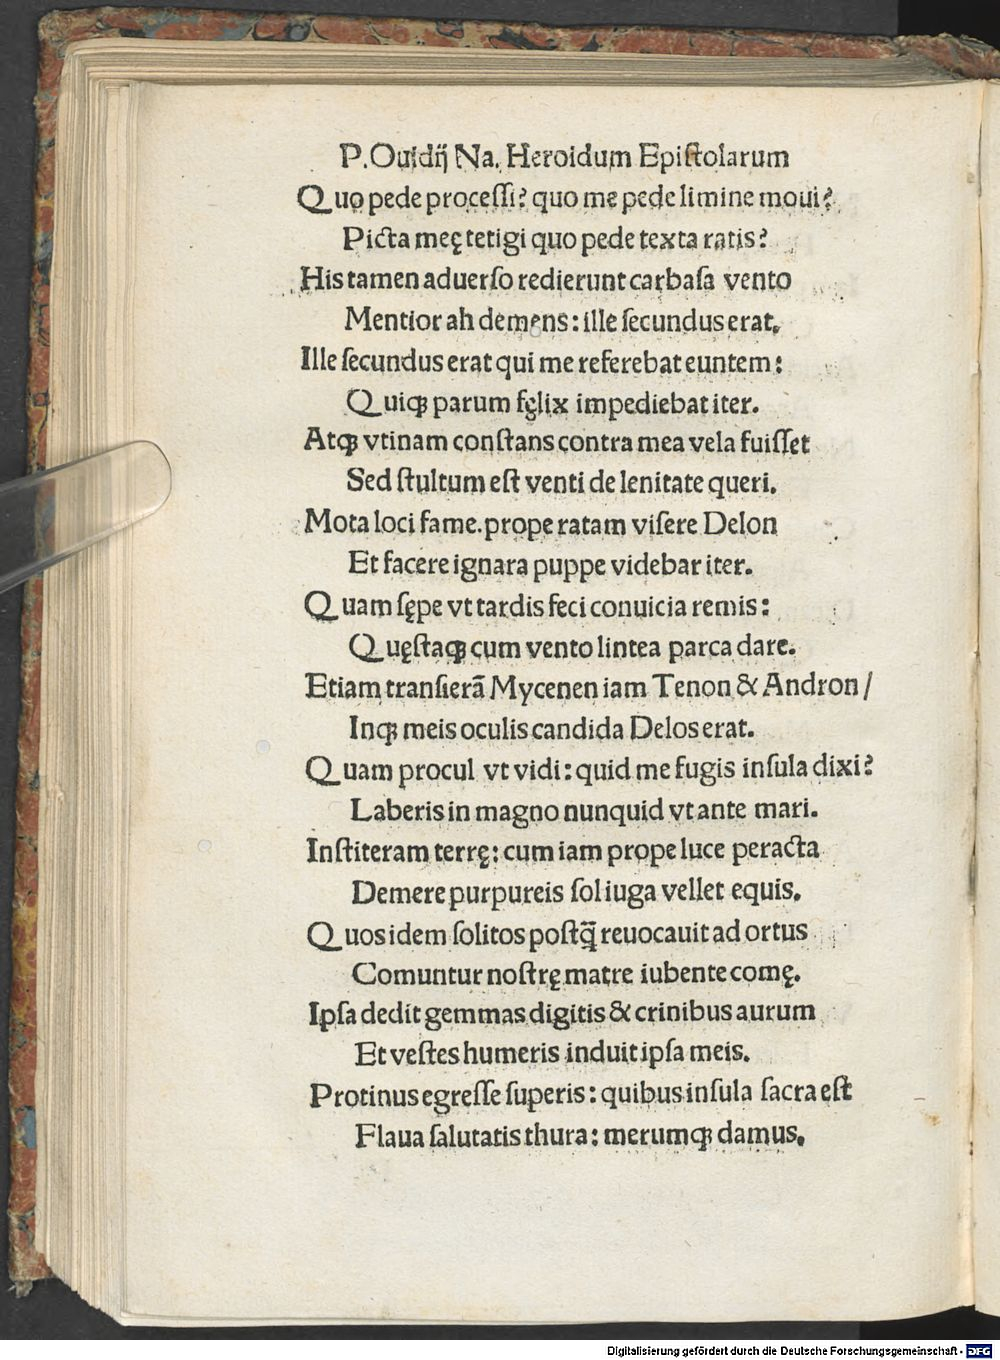 P. Ouidij Na. Heroidum Epistolarum
Quo pede processi? quo me pede limine moui?
Picta meę tetigi quo pede texta ratis?
His tamen aduerso redierunt carbasa vento
Mentior ah demens: ille secundus erat.
Ille secundus erat qui me referebat euntem:
Quiqꝫ parum fęlix impediebat iter.
Atqꝫ vtinam constans contra mea vela fuisset
Sed stultum est venti de lenitate queri.
Mota loci fame. prope ratam visere Delon
Et facere ignara puppe videbar iter.
Quam sępe vt tardis feci conuicia remis:
Quęstaqꝫ cum vento lintea parca dare.
Etiam transierā Mycenen iam Tenon & Andron /
Inqꝫ meis oculis candida Delos erat.
Quam procul vt vidi: quid me fugis insula dixi?
Laberis in magno nunquid vt ante mari.
Institeram terrę: cum iam prope luce peracta
Demere purpureis sol iuga vellet equis.
Quos idem solitos postq̄ reuocauit ad ortus
Comuntur nostrę matre iubente comę.
Ipsa dedit gemmas digitis & crinibus aurum
Et vestes humeris induit ipsa meis.
Protinus egresse superis: quibus insula sacra est
Flaua salutatis thura: merumqꝫ damus.
Digitalisierung gefördert durch die Deutsche Forschungsgemeinschaft - DFG